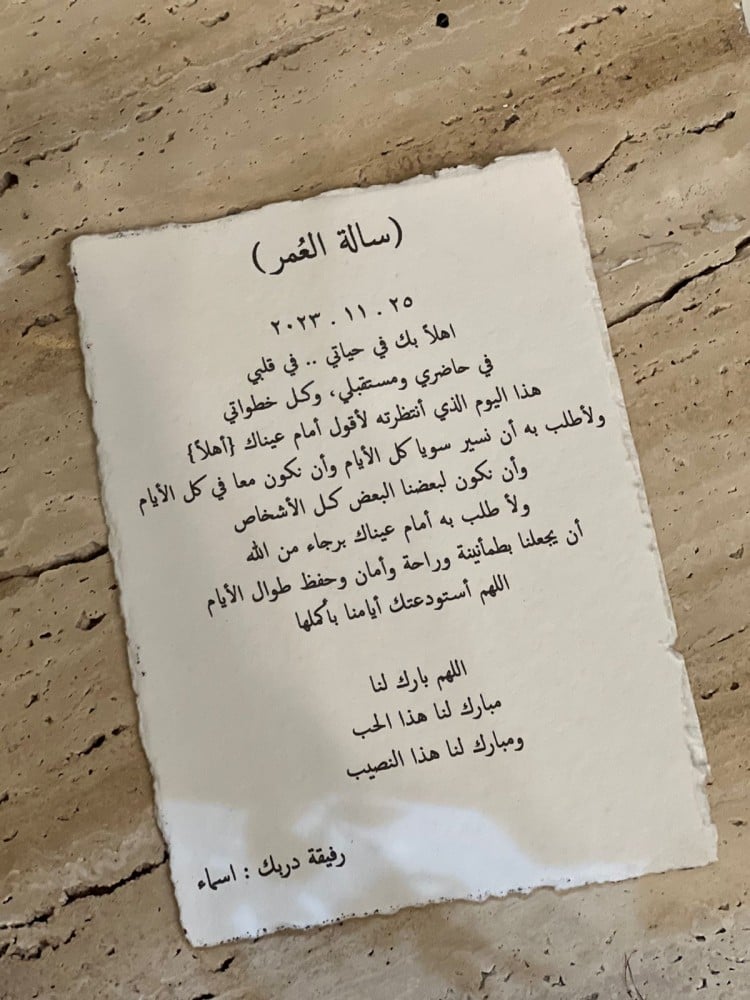 (سالة العُمر)
٢٥ . ١١ . ٢٠٢٣
اهلاً بك في حياتي .. في قلبي
في حاضري ومستقبلي، وكل خطواتي
هذا اليوم الذي أنتظرته لأقول أمام عيناك {أهلاً}
ولأطلب به أن نسير سويا كل الأيام وأن نكون معا في كل الأيام
وأن نكون لبعضنا البعض كل الأشخاص
ولأ طلب به أمام عيناك برجاء من الله
أن يجعلنا بطمأنينة وراحة وأمان وحفظ طوال الأيام
اللهم أستودعتك أيامنا بأكملها
اللهم بارك لنا
مبارك لنا هذا الحب
ومبارك لنا هذا النصيب
رفيقة دربك : اسماء